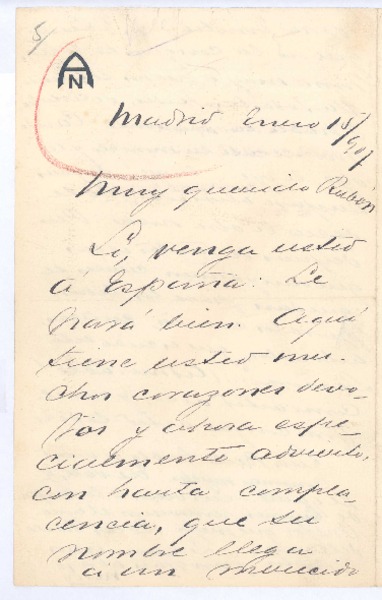 5/
AN
Madrid Enero 15/907
Muy querido Rubén
Sí, venga usted
á España. Le
hará bien. Aquí
tiene usted mu-
chos corazones devo-
tos y ahora espe-
cialmente advierto,
con harta compla-
cencia, que su
nombre llega
a un merecido